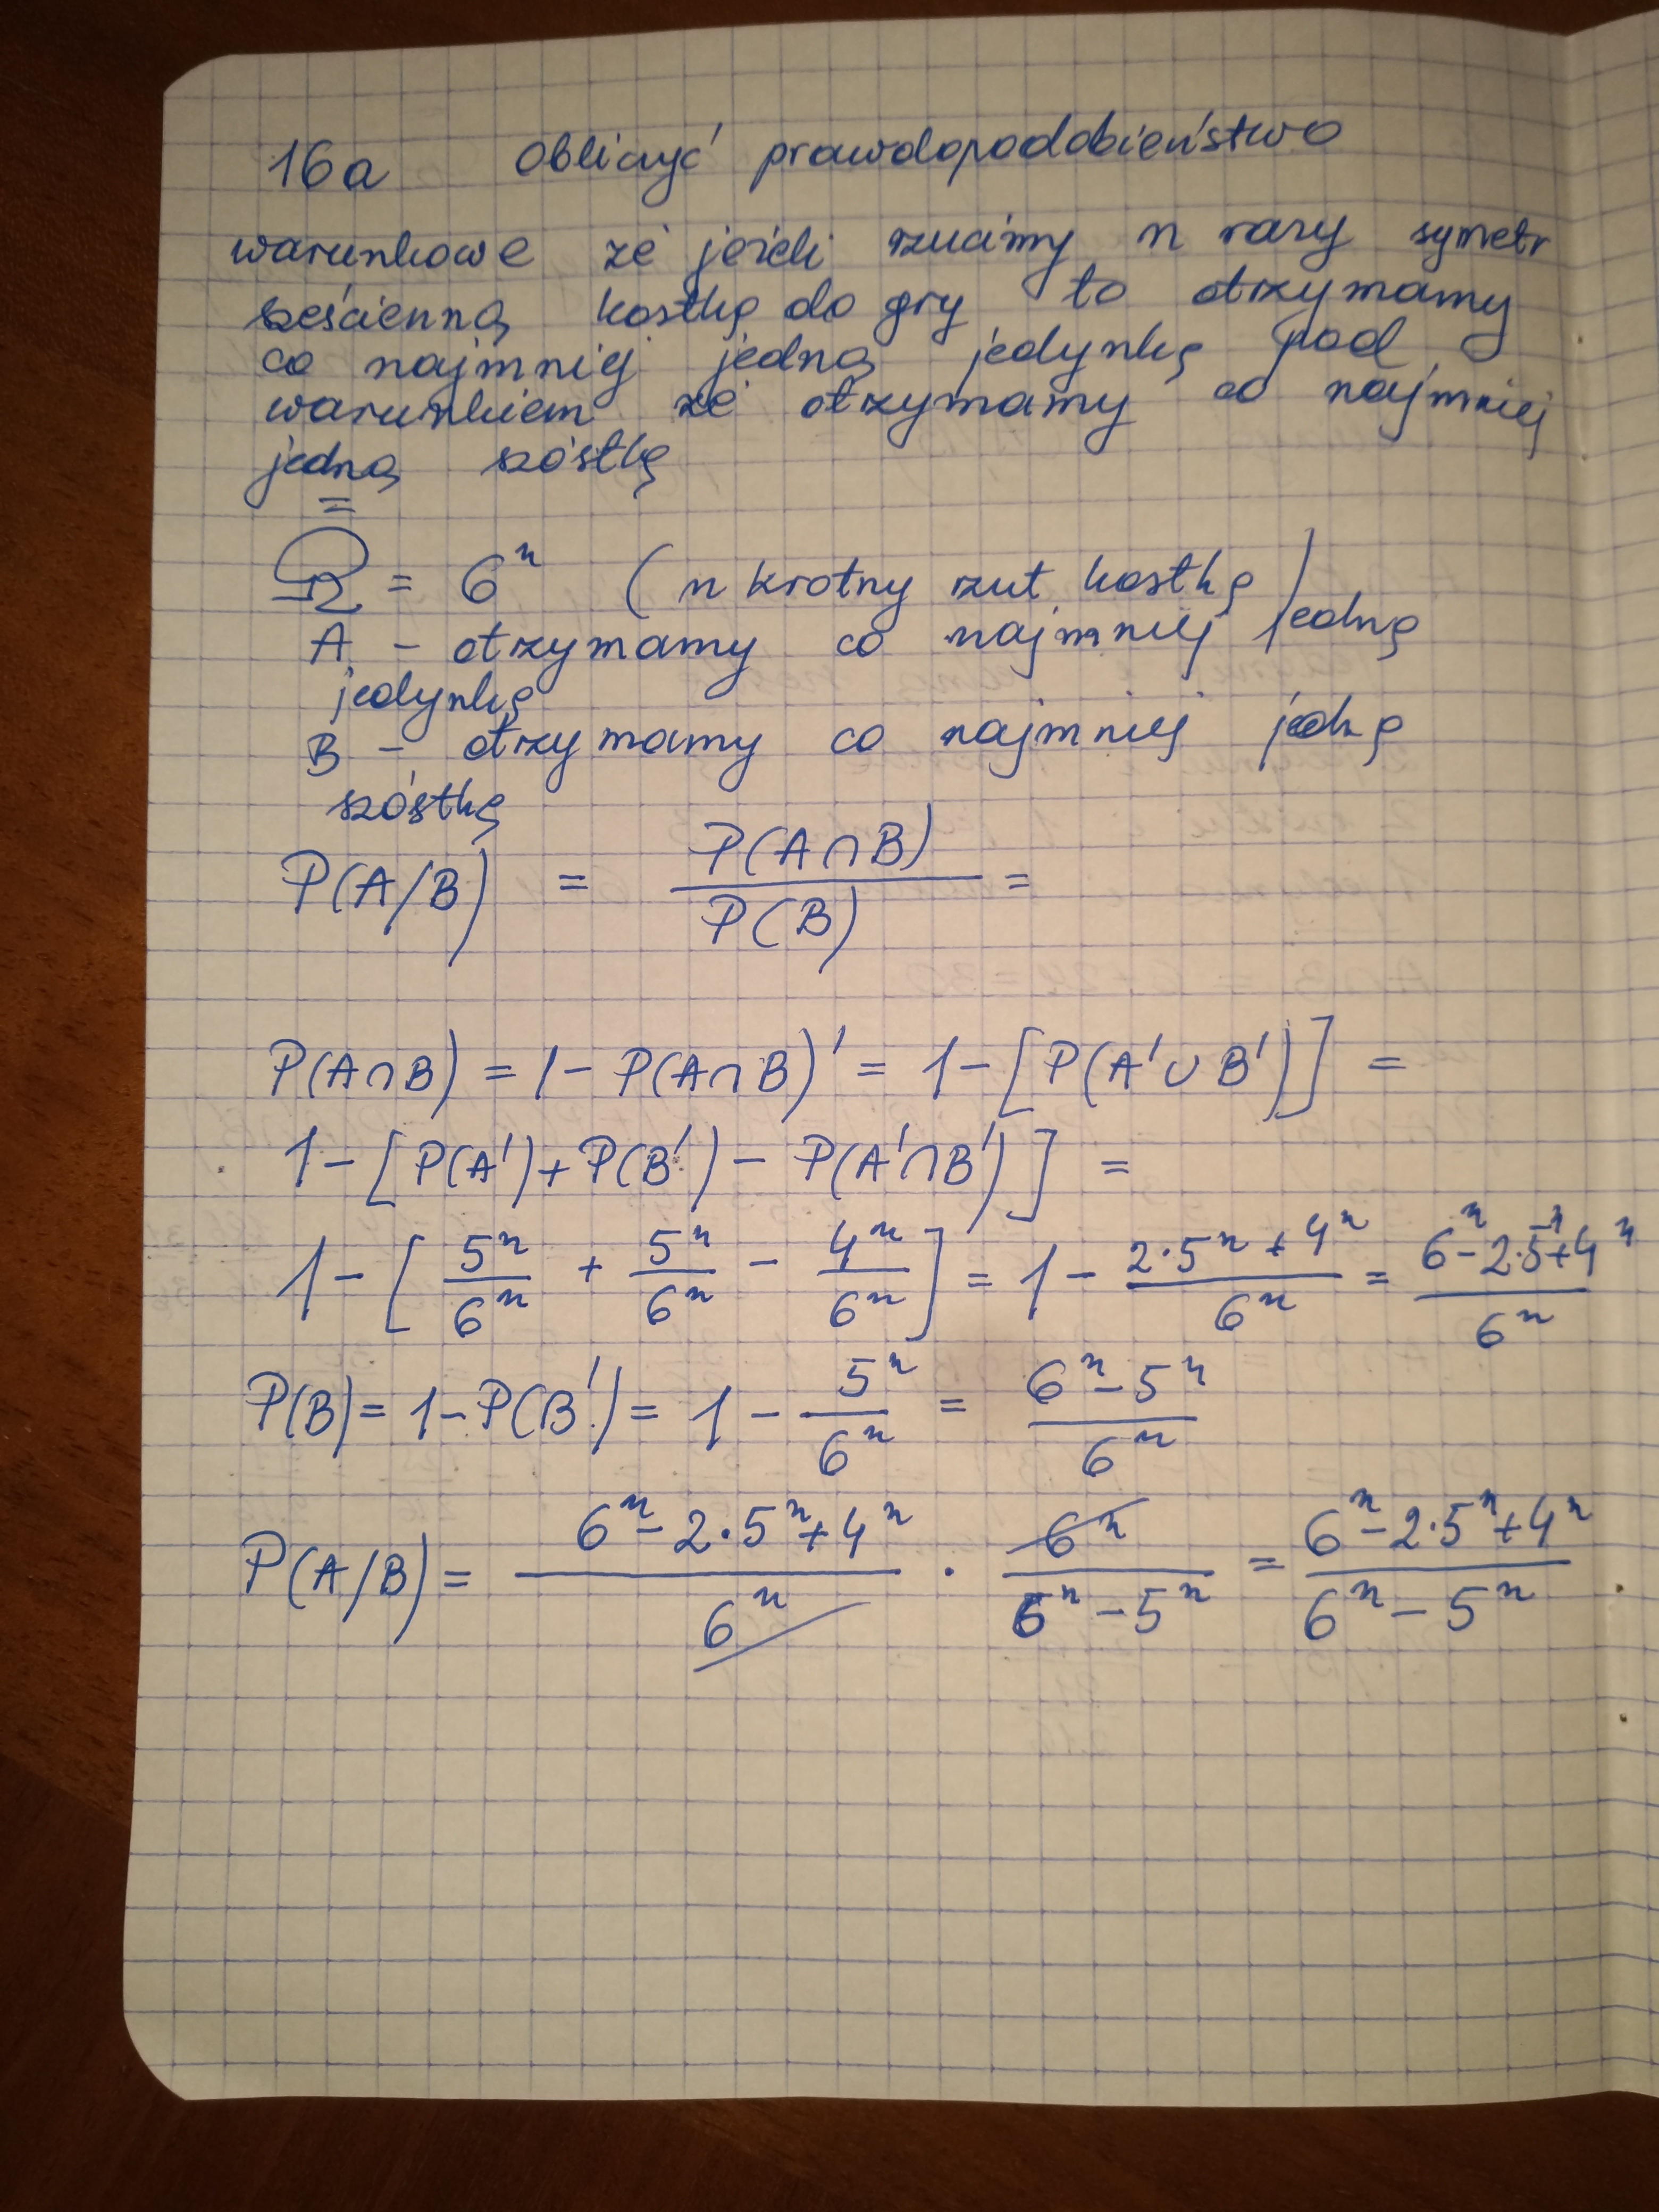 16a Obliczyć prawdopodobieństwo
warunkowe że jeżeli rzucimy n razy symetr
sześcienną kostkę do gry to otrzymamy
co najmniej jedną jedynkę pod
warunkiem że otrzymamy co najmniej
jedną szóstkę
Ω = 6^n (n krotny rzut kostkę)
A - otrzymamy co najmniej jednę
jedynkę
B - otrzymamy co najmniej jednę
szóstkę
P(A/B) = P(A∩B) / P(B) =
P(A∩B) = 1 - P(A∩B)' = 1 - [P(A'∪B')] =
1 - [P(A') + P(B') - P(A'∩B')] =
1 - [5^n/6^n + 5^n/6^n - 4^n/6^n] = 1 - (2·5^n + 4^n)/6^n = (6^n - 2·5^n + 4^n)/6^n
P(B) = 1 - P(B') = 1 - 5^n/6^n = (6^n - 5^n)/6^n
P(A/B) = (6^n - 2·5^n + 4^n)/6^n · 6^n/(6^n - 5^n) = (6^n - 2·5^n + 4^n)/(6^n - 5^n)